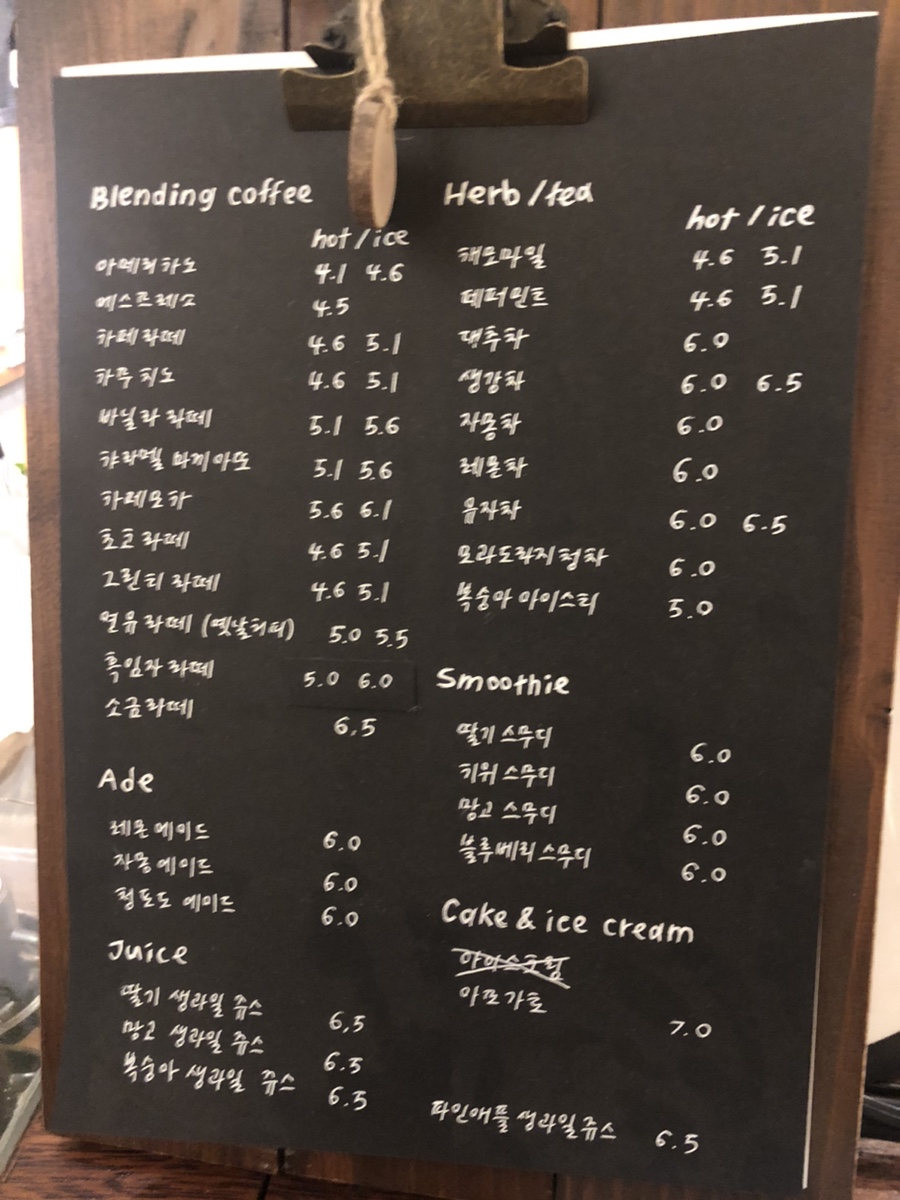 Blending coffee
hot / ice
아메리카노 4.1 4.6
에스프레소 4.5
카페라떼 4.6 5.1
카푸치노 4.6 5.1
바닐라 라떼 5.1 5.6
캬라멜 마끼아또 5.1 5.6
카페모카 5.6 6.1
초코라떼 4.6 5.1
그린티 라떼 4.6 5.1
연유라떼 (옛날커피) 5.0 5.5
흑임자 라떼 5.0 6.0
소금라떼 6.5
Ade
레몬에이드 6.0
자몽에이드 6.0
청포도 에이드 6.0
Juice
딸기 생과일 쥬스 6.5
망고 생과일 쥬스 6.5
복숭아 생과일 쥬스 6.5
Herb / tea
hot / ice
캐모마일 4.6 5.1
페퍼민트 4.6 5.1
대추차 6.0
생강차 6.0 6.5
자몽차 6.0
레몬차 6.0
유자차 6.0 6.5
모과도라지청차 6.0
복숭아 아이스티 5.0
Smoothie
딸기 스무디 6.0
키위 스무디 6.0
망고 스무디 6.0
블루베리 스무디 6.0
Cake & ice cream
아이스크림
아포가토 7.0
파인애플 생과일쥬스 6.5